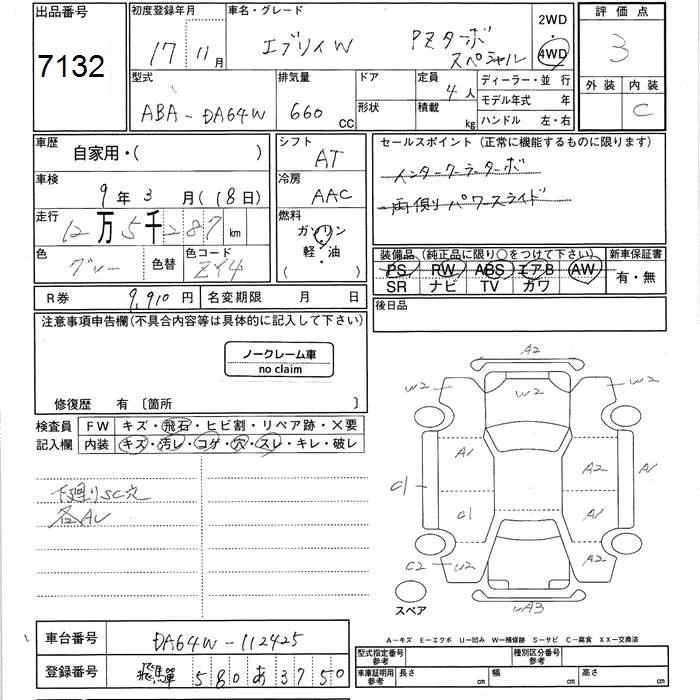 出品番号
7132
初度登録年月
17年 11月
車名・グレード
エブリイW PZターボスペシャル
2WD・4WD
評価点
3
外装 内装
C
型式
ABA-DA64W
排気量
660 CC
ドア
形状
定員
4人
積載
kg
ディーラー・並行
モデル年式 年
ハンドル 左・右
車歴
自家用・( )
シフト
AT
セールスポイント(正常に機能するものに限ります)
インタークーラーターボ
両側パワースライド
車検
9年3月(18日)
冷房
AAC
走行
12万5千287km
燃料
ガソリン
軽・油
( )
色
グレー
色替
色コード
ZY4
装備品(純正品に限り○をつけて下さい)
PS PW ABS エアB AW
SR ナビ TV カワ
新車保証書
有・無
R券
9,910円
名変期限 月 日
後日品
注意事項申告欄(不具合内容等は具体的に記入して下さい)
ノークレーム車
no claim
修復歴 有〔箇所
検査員
記入欄
FW キズ・飛石・ヒビ割・リペア跡・×要
内装 キズ・汚レ・コゲ・穴・スレ・キレ・破レ
下廻りSC穴
各AU
A2
W2
W2
W2
A1
A2
A1
C1
C1
A1
C2
U2
A2
UA3
スペア
A-キズ E-エクボ U-凹み W-補修跡 S-サビ C-腐食 XX-交換済
車台番号
DA64W-112425
登録番号
飛騨 580 あ 3750
型式指定番号
参考
種別区分番号
参考
車庫証明用
参考
長さ 幅 高さ